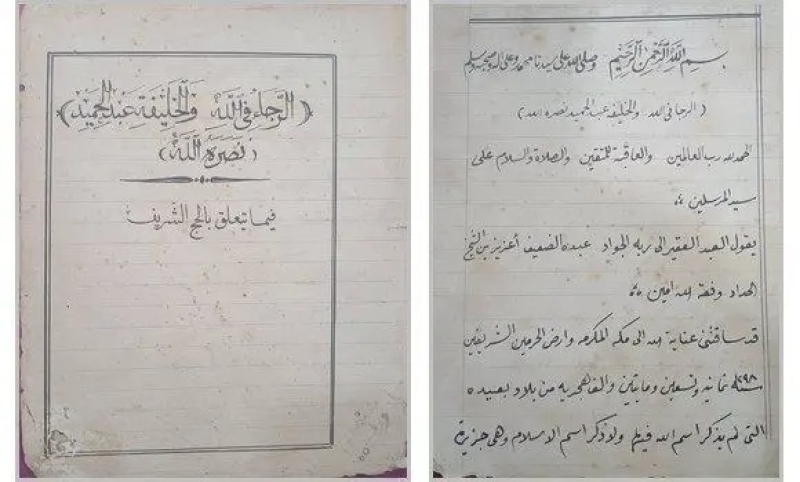 (الرجاء في الله والخليفة عبد الحميد)
(نصره الله)
فيما يتعلق بالحج الشريف
بسم الله الرحمن الرحيم وصلى الله على سيدنا محمد وعلى اله وصحبه وسلم
(الرجا في الله والخليفه عبد الحميد نصره الله)
الحمد لله رب العالمين والعاقبة للمتقين والصلاة والسلام على
سيد المرسلين
يقول العبد الفقير الى ربه الجواد عبده الضعيف أعزيز بن الشيخ
الحداد وفقه الله امين
قد ساقتنى عناية الله الى مكه المكرمه وارض الحرمين الشريفين
سنة ١٢٩٨ ثمانيه وتسعين وماتين والف هجريه من بلاد بعيده
التى لم يذكر اسم الله فيها ولا ذكر اسم الاسلام وهى جزيرة